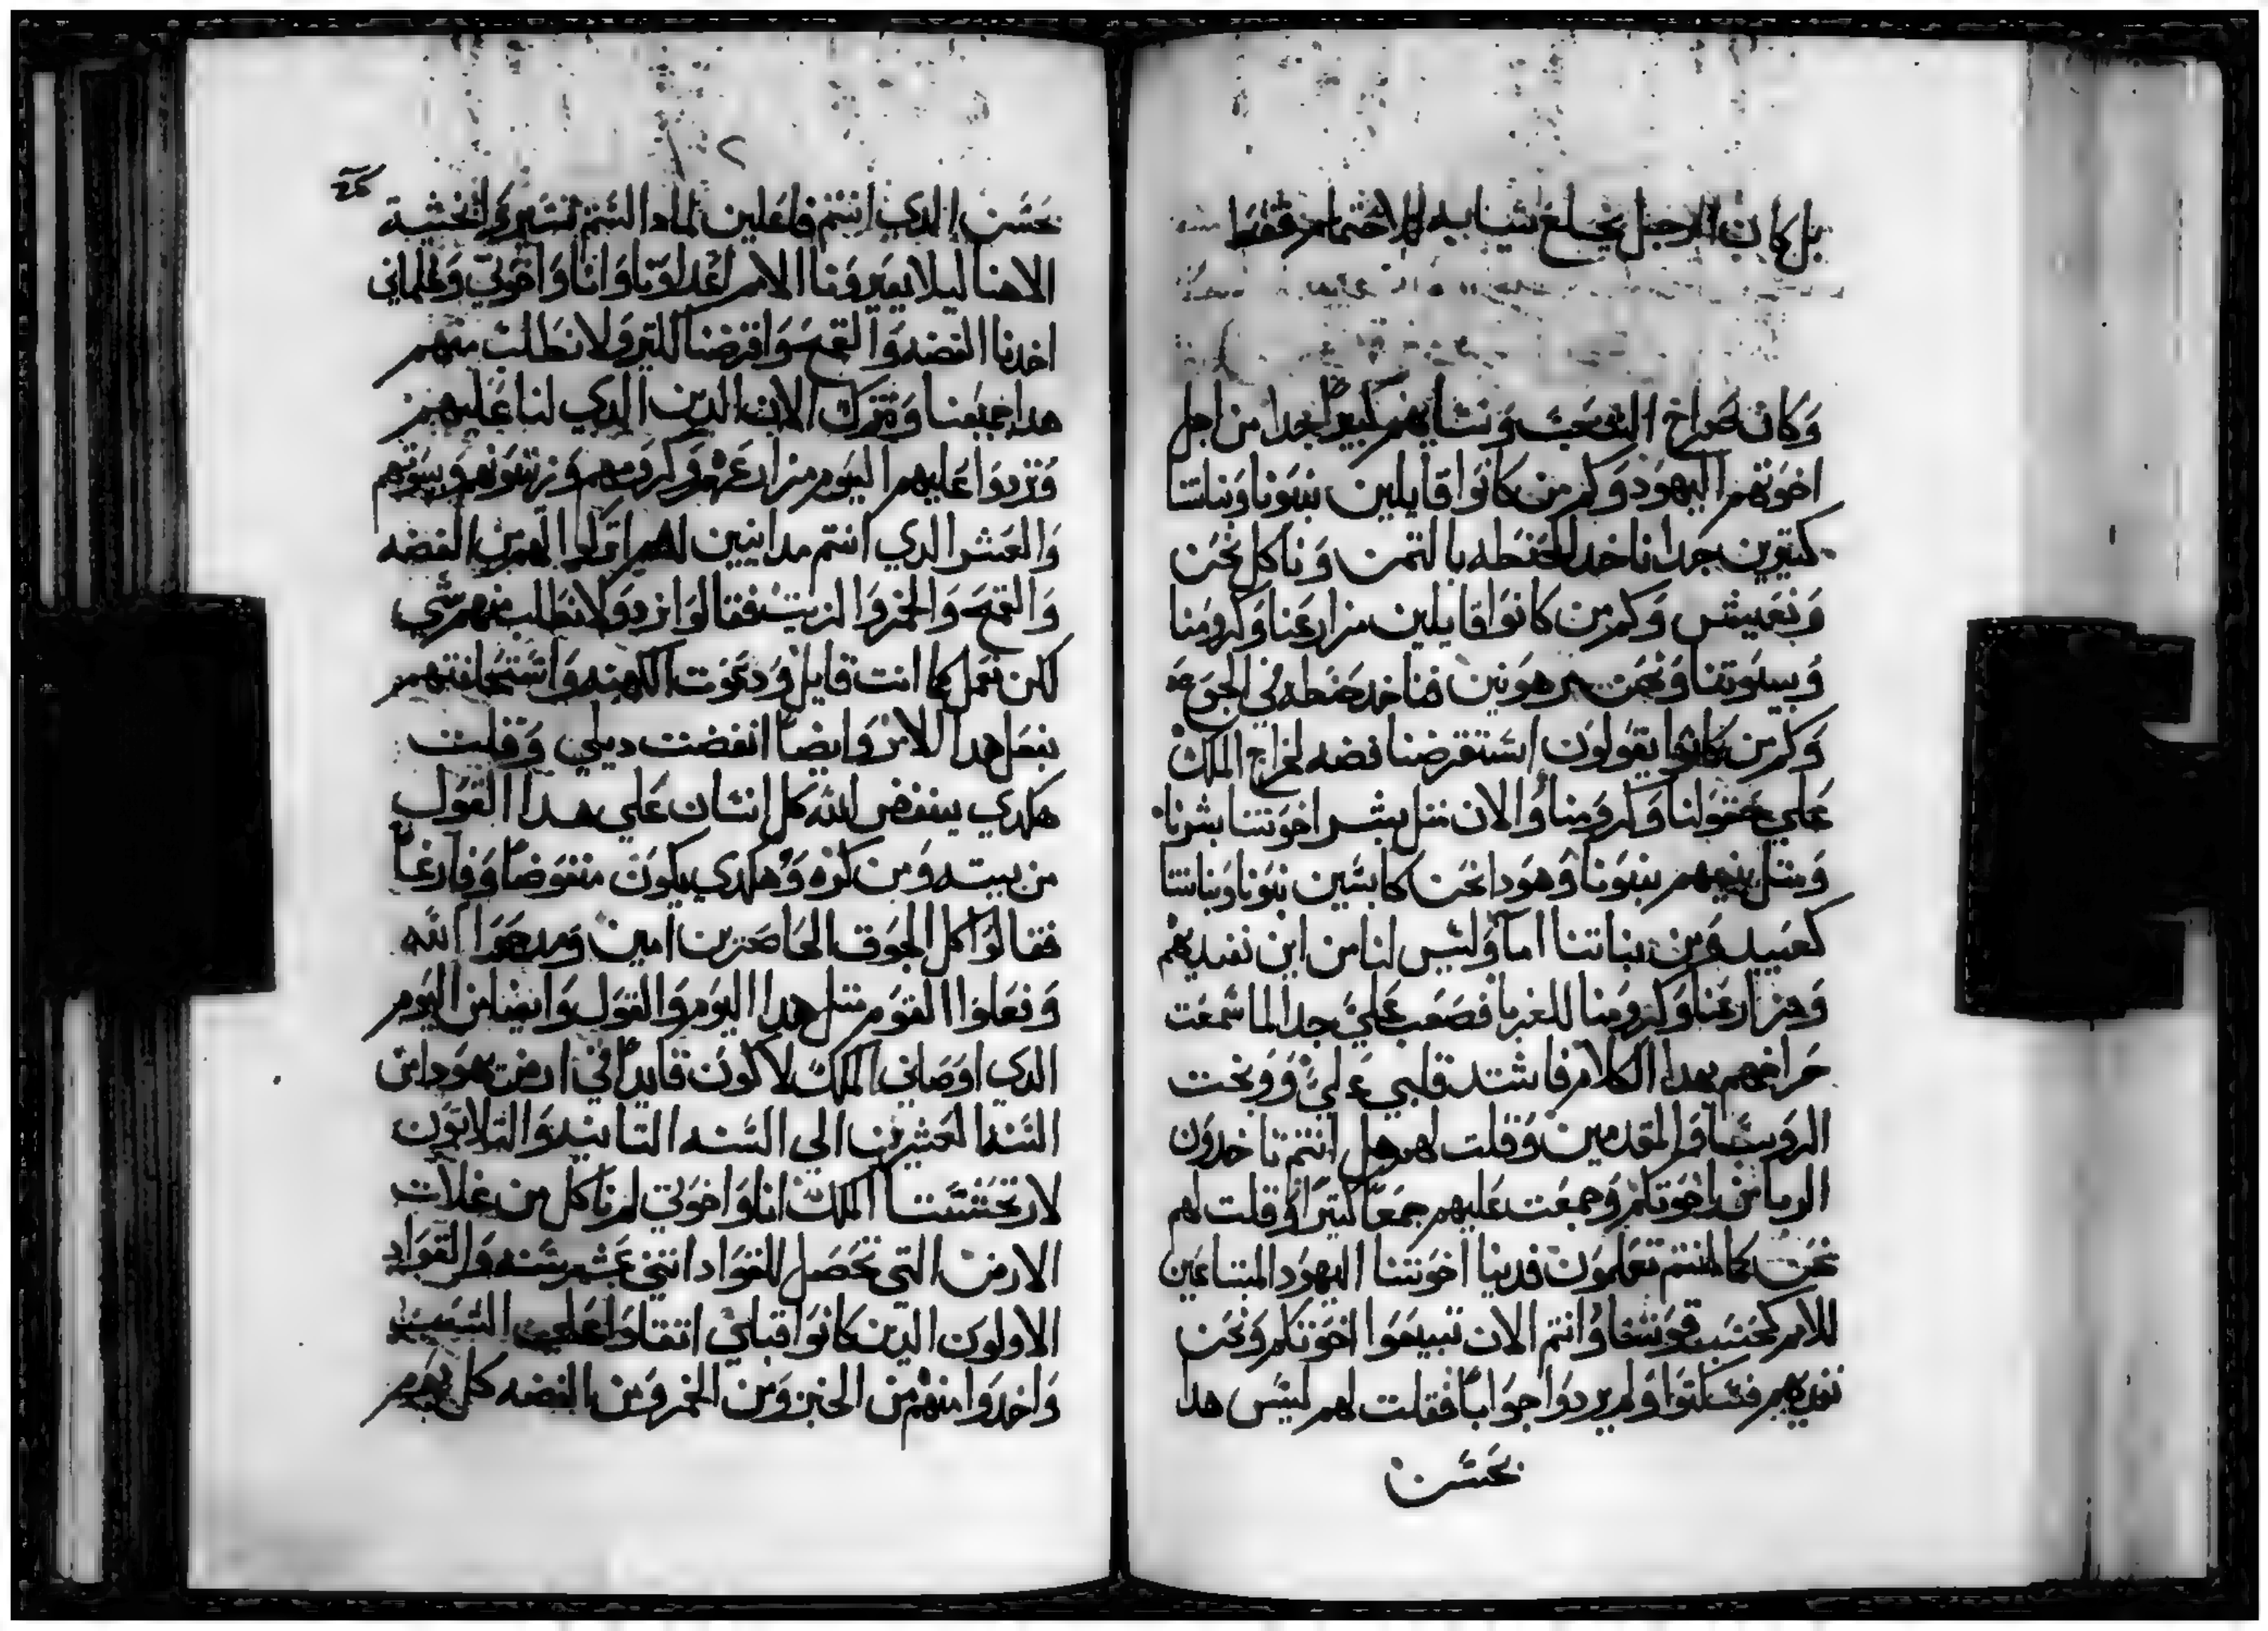 بل كان الرجل يخلع ثيابه للاحتمام فقط
وكان صراخ الشعب ونسايهم كبيرا جدا من اجل
اخوتهم اليهود وكم من كانوا قايلين بنونا وبناتنا
كتيرين جدا ناخد الحنطه بالتمن وناكل نحن
ونعيش وكم من كانوا قايلين مزارعنا وكرومنا
وبيوتنا ونحن مرهونين فناخد حنطه في الجوع
وكم من كانوا يقولون استقرضنا فضه لخراج الملك
علي حقولنا وكرومنا والان متل بشر اخوتنا بشرنا
ومتل بنيهم بنونا وهودا نحن كابسين بنونا وبناتنا
كعبيد ومن بناتنا اما وليس لنا من اين نفديهم
ومزارعنا وكرومنا للغربا فصعب علي جدا لما سمعت
صراخهم بهدا الكلام فاشتد قلبي علي ووبخت
الروسا والمقدمين وقلت لهم هل انتم تاخدون
الربا من اخوتكم وجمعت عليهم جمعا كتيرا وقلت لهم
نحن كما انتم تعلمون فدينا اخوتنا اليهود المبتاعين
للامم كحسب قوتنا وانتم الان تبيعوا اخوتكم ونحن
نفديهم فسكتوا ولم يردوا جوابا فقلت لهم ليس هدا
بحسن
٢
بحسن الدي انتم فاعلين لمادا لستم تسيروا بخشية
الاهنا ليلا يعيرونا الامم اعداونا وانا واخوتي وغلماني
اخدنا الفضه والقمح واقرضنا للتير ولا نطلب منهم
هدا جميعنا ونترك الان الدين الدي لنا عليهم
وتردوا عليهم اليوم مزارعهم وكرومهم وزيتونهم وبيوتهم
والعشر الدي انتم مداينين لهم من الفضه
والقمح والخمر والزيت فقالوا نرد ولا نطلب منهم شي
لكن نعمل كما انت قايل ودعوت الكهنه واستحلفتهم
بفعل هدا الامر وايضا انفضت ديلي وقلت
هكدي ينفض الله كل انسان علي هدا القول
من بيته ومن كده وهكدي يكون منفوضا وفارغا
فقالوا كل الجوق الحاضرين امين ومدحوا الله
وفعلوا القوم متل هدا اليوم والقول وايضا من اليوم
الدي اوصاني الملك لاكون قايدا في ارض يهودا من
السنه العشرين الي السنه التانيه والتلاتون
لارتحششتا الملك انا واخوتي لم ناكل من غلات
الارض التي تحصل للقواد اتني عشر سنه والقواد
الاولون الدين كانوا قبلي اتقلوا علي الشعب
واخدوا منهم من الخبز ومن الخمر ومن الفضه كل يوم